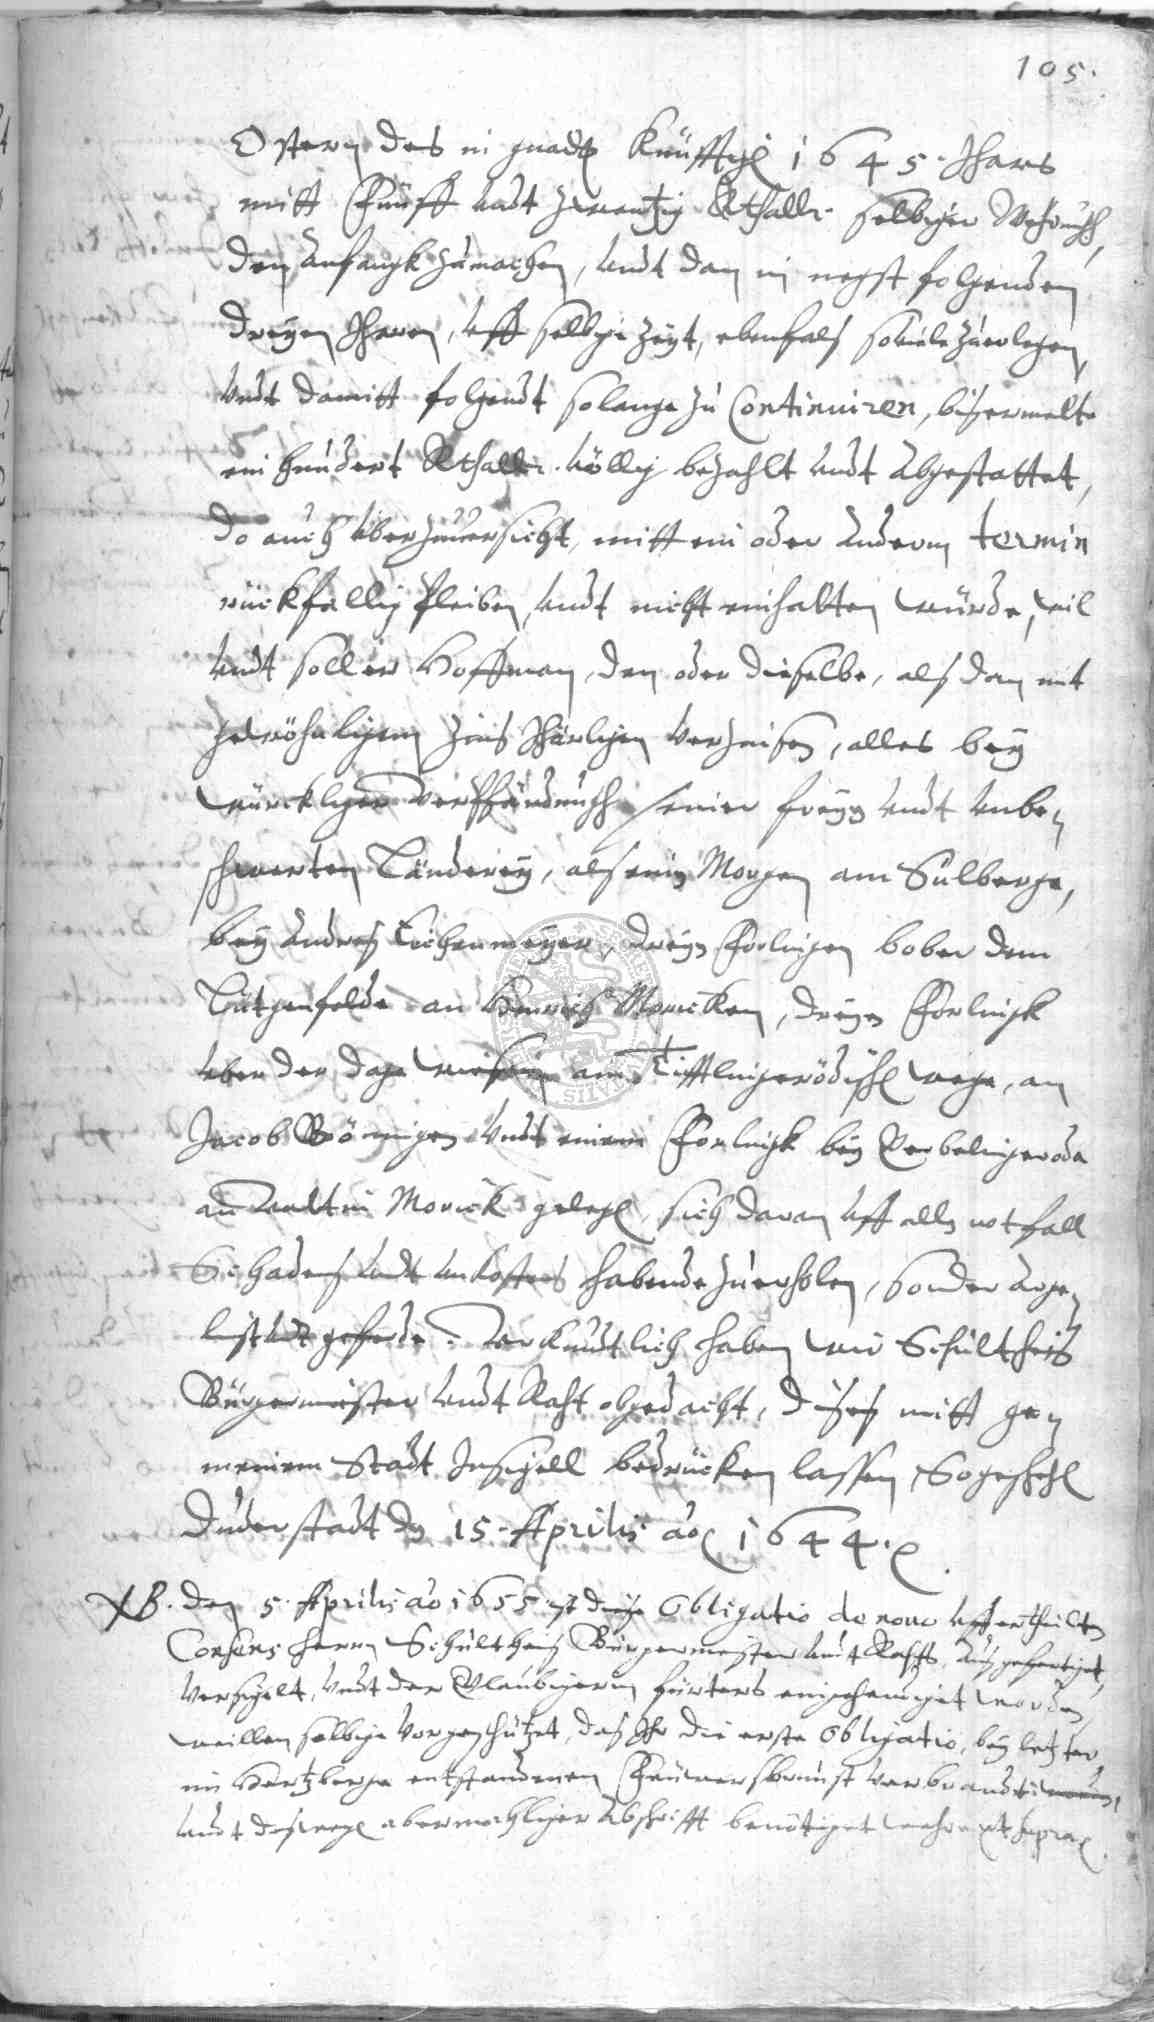 105.
Ostern des in gnaden Künfftigen 1645. Jhars
mitt Fünff undt zwentzig Rthallr. selbiger Wehrungh,
den anfangk zumachen, undt dan in negst folgenden
dreyen Jharen, uff selbige zeyt, ebenfals soviele zuerlegen,
undt damitt folgendt solange zu Continuiren, bis ermelte
ein hundert Rthallr. völlig bezahlt undt abgestattet,
do auch über zuversicht, mitt ein oder anderm termin
rückfellig pleiben, undt nicht einhalten würde, wil
undt soll er Hoffman, den oder dieselbe, alsdan mit
gewöhnligem zins Jhärligen verzinsen, alles bey
würckliger verpfändungh seiner freyen undt unbe-
schwerten Länderey, als ein Morgen am Sulberge,
bey Andres Eichenmeyer, dreyen Forlingen bober dem
Lütgenfelde an Henrich Moricken, dreyen Forlingk
uber der wiesen am Tifftlingerödischen wege, an
Jacob Böningen undt einem Forlingk bey Verbelingeroda
an Valtin Morick gelegen, sich daran uff allen notfall
Schadens undt unkostens habende zuerholen, sonder arge-
list undt geferde. Uhrkundtlich haben wir Schultheis
Bürgermeister undt Raht obgedacht, dieses mitt ge-
meinem Stadt Insigell bedrücken lassen, So geschehen
Duderstadt den 15. Aprilis ao 1644.
NB. Den 5. Aprilis ao 1655 ist diese Obligatio de novo uff ertheilten
Consens herrn Schultheis Bürgermeister undt Rahts, ausgefertiget,
versigelt, undt der Glaubigerin fürters eingehendiget worden,
weillen selbige vorgeschützet, das Ihr die erste Obligatio, bey letzter
im Hertzberge entstandenen Feuwersbrunst verbrandt
undt deswegen abermahliger abschrifft benötiget wehre ut supra.